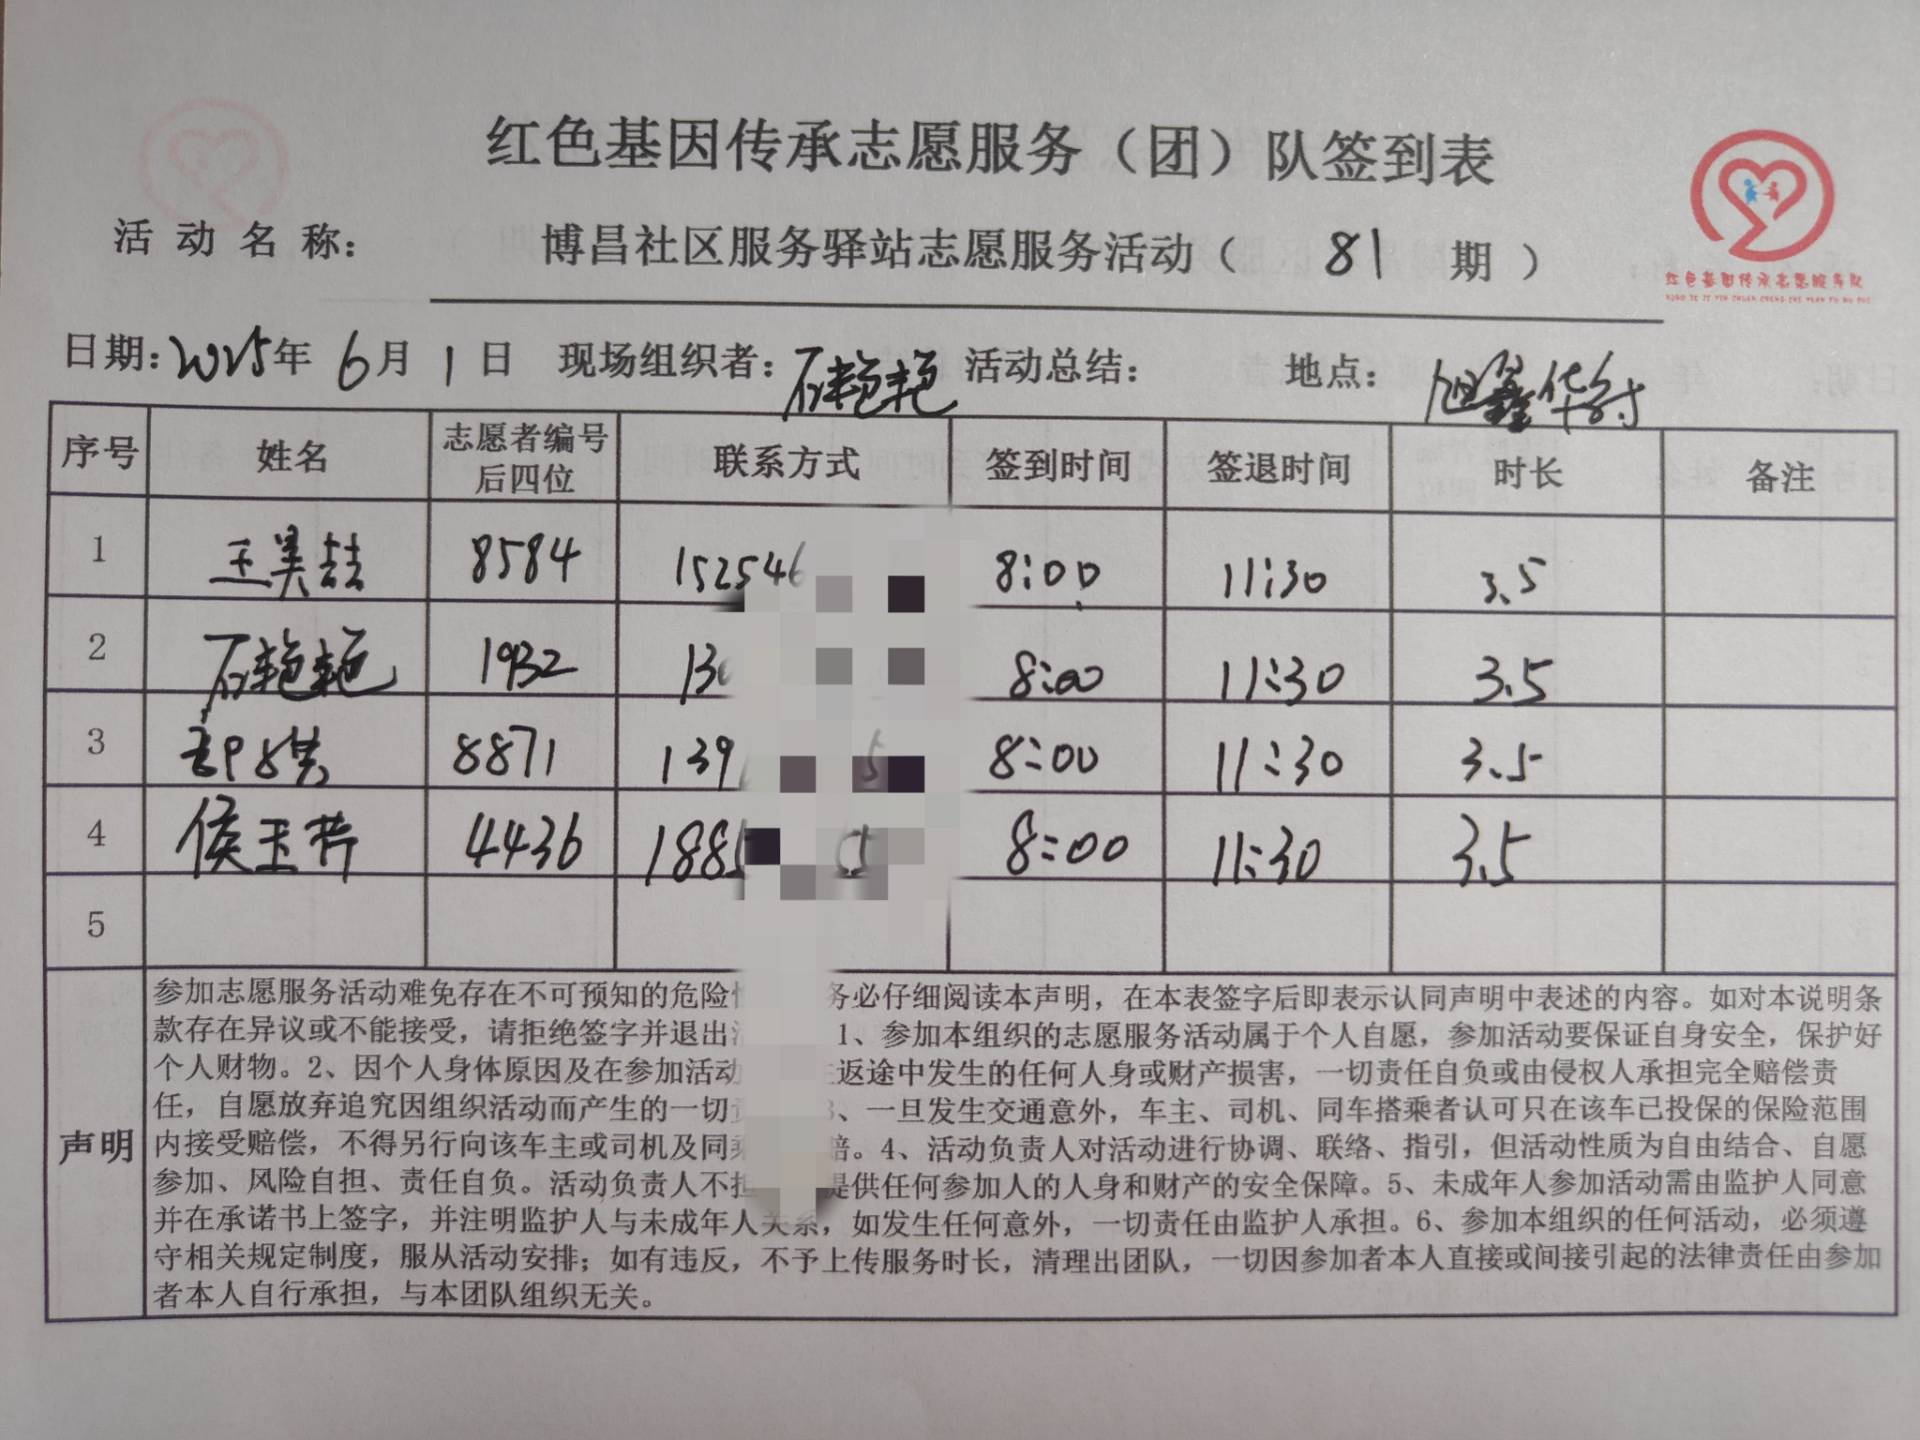 红色基因传承志愿服务（团）队签到表
红色基因传承志愿服务队
活动名称：博昌社区服务驿站志愿服务活动（81期）
日期：2025年6月1日 现场组织者：石艳艳 活动总结： 地点：旭鑫华府
序号 姓名 志愿者编号后四位 联系方式 签到时间 签退时间 时长 备注
1 王美喆 8584 152546 8:00 11:30 3.5
2 石艳艳 1932 13 8:00 11:30 3.5
3 8871 139 5 8:00 11:30 3.5
4 侯玉芹 4436 188 5 8:00 11:30 3.5
5
声明
参加志愿服务活动难免存在不可预知的危险 务必仔细阅读本声明，在本表签字后即表示认同声明中表述的内容。如对本说明条
款存在异议或不能接受，请拒绝签字并退出 1、参加本组织的志愿服务活动属于个人自愿，参加活动要保证自身安全，保护好
个人财物。2、因个人身体原因及在参加活动 返途中发生的任何人身或财产损害，一切责任自负或由侵权人承担完全赔偿责
任，自愿放弃追究因组织活动而产生的一切 3、一旦发生交通意外，车主、司机、同车搭乘者认可只在该车已投保的保险范围
内接受赔偿，不得另行向该车主或司机及同乘 赔。4、活动负责人对活动进行协调、联络、指引，但活动性质为自由结合、自愿
参加、风险自担、责任自负。活动负责人不担 提供任何参加人的人身和财产的安全保障。5、未成年人参加活动需由监护人同意
并在承诺书上签字，并注明监护人与未成年人关系，如发生任何意外，一切责任由监护人承担。6、参加本组织的任何活动，必须遵
守相关规定制度，服从活动安排；如有违反，不予上传服务时长，清理出团队，一切因参加者本人直接或间接引起的法律责任由参加
者本人自行承担，与本团队组织无关。